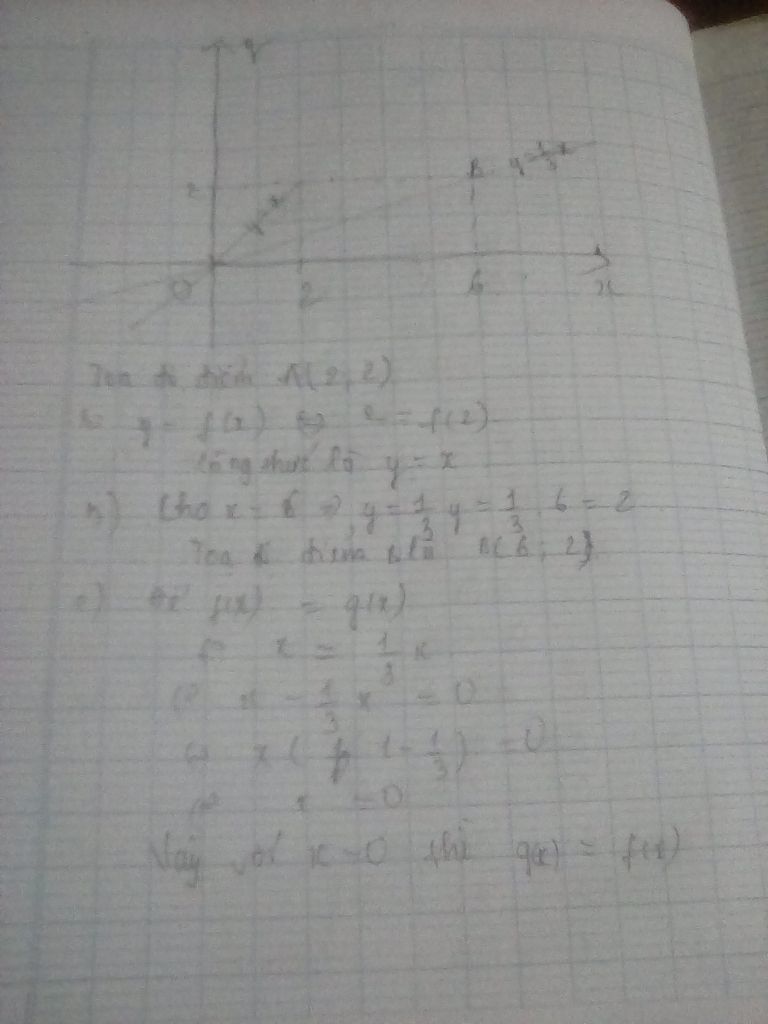 y
B y = 1/3 x
2
y = x
O 2 6 x
Toạ độ điểm A(2, 2)
y = f(x) ⇔ 2 = f(2)
Công thức là y = x
b) Cho x = 6 ⇒ y = 1/3 y = 1/3 . 6 = 2
Toạ độ điểm B là B(6; 2)
c) Để f(x) = g(x)
⇔ x = 1/3 x
⇔ x - 1/3 x = 0
⇔ x ( 1 - 1/3 ) = 0
⇔ x = 0
Vậy với x = 0 thì g(x) = f(x)